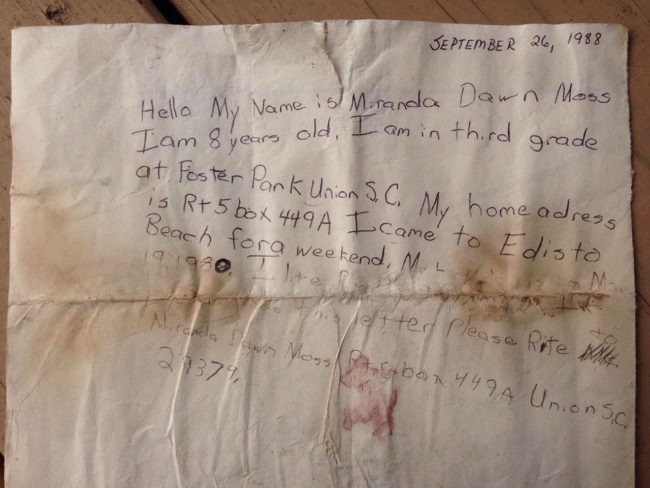 SEPTEMBER 26, 1988
Hello My Name is Miranda Dawn Moss
I am 8 years old. I am in third grade
at Foster Park Union S.C. My home adress
is Rt 5 box 449A I came to Edisto
Beach for a weekend, My
19, 1980. I like
this letter Please Rite to
Miranda Dawn Moss Rt 5 box 449A Union S.C.
29379,